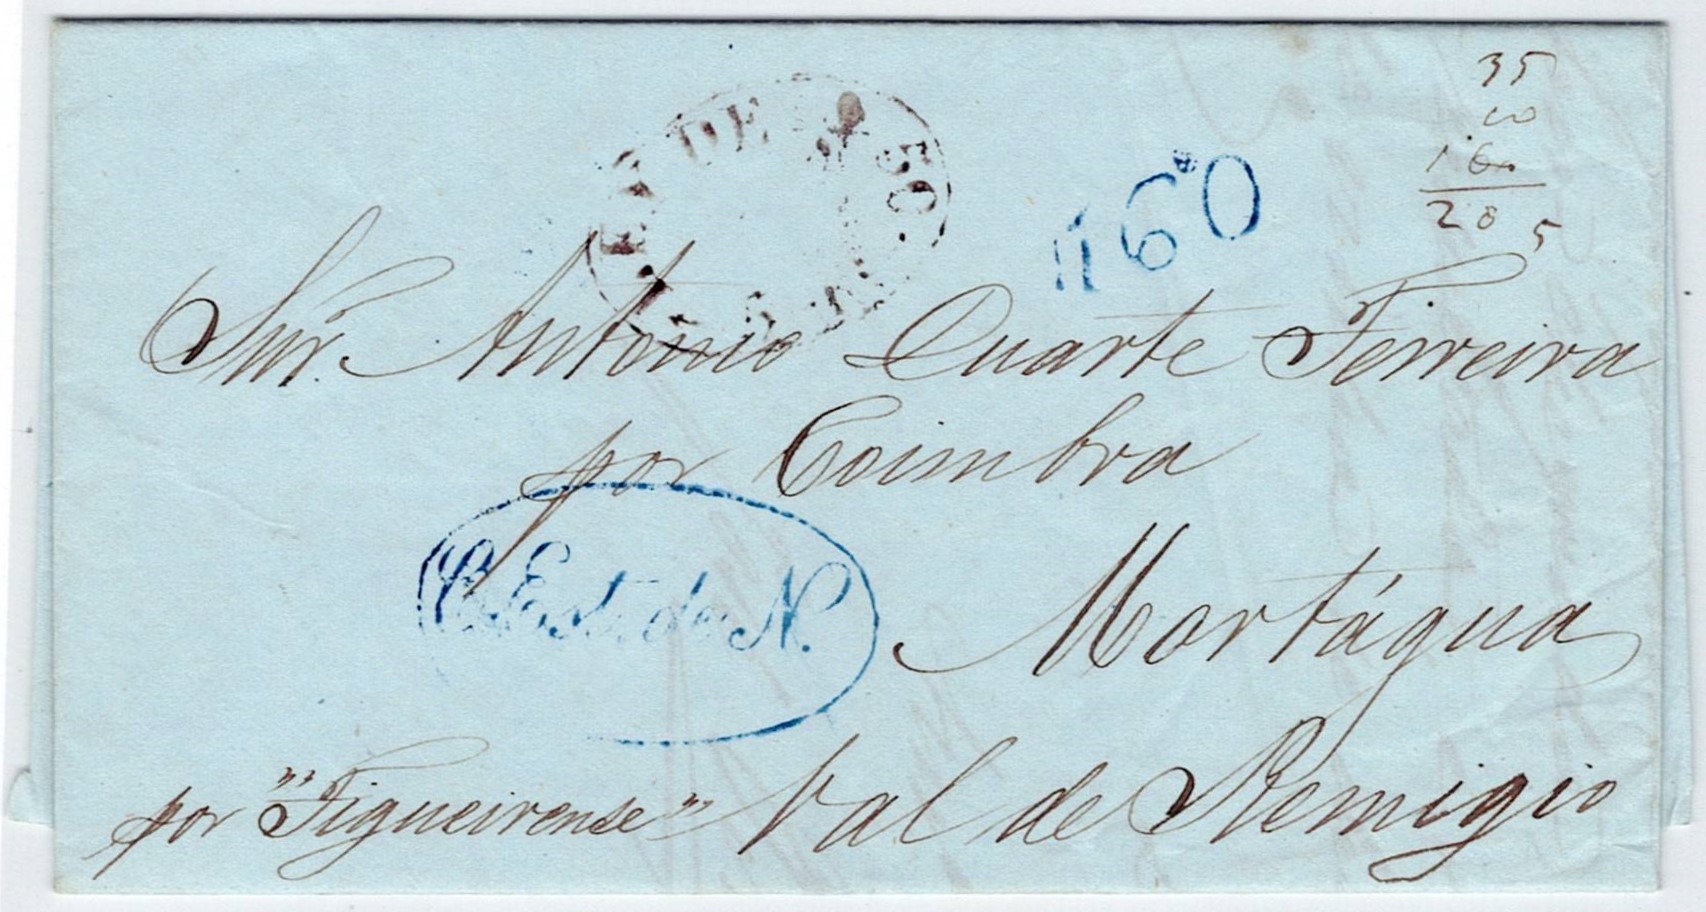 35
10
160
205
DE
160
Snr. Antonio Duarte Ferreira
por Coimbra
C. Est. da N.
Mortágua
por "Figueirense" Val de Remigio